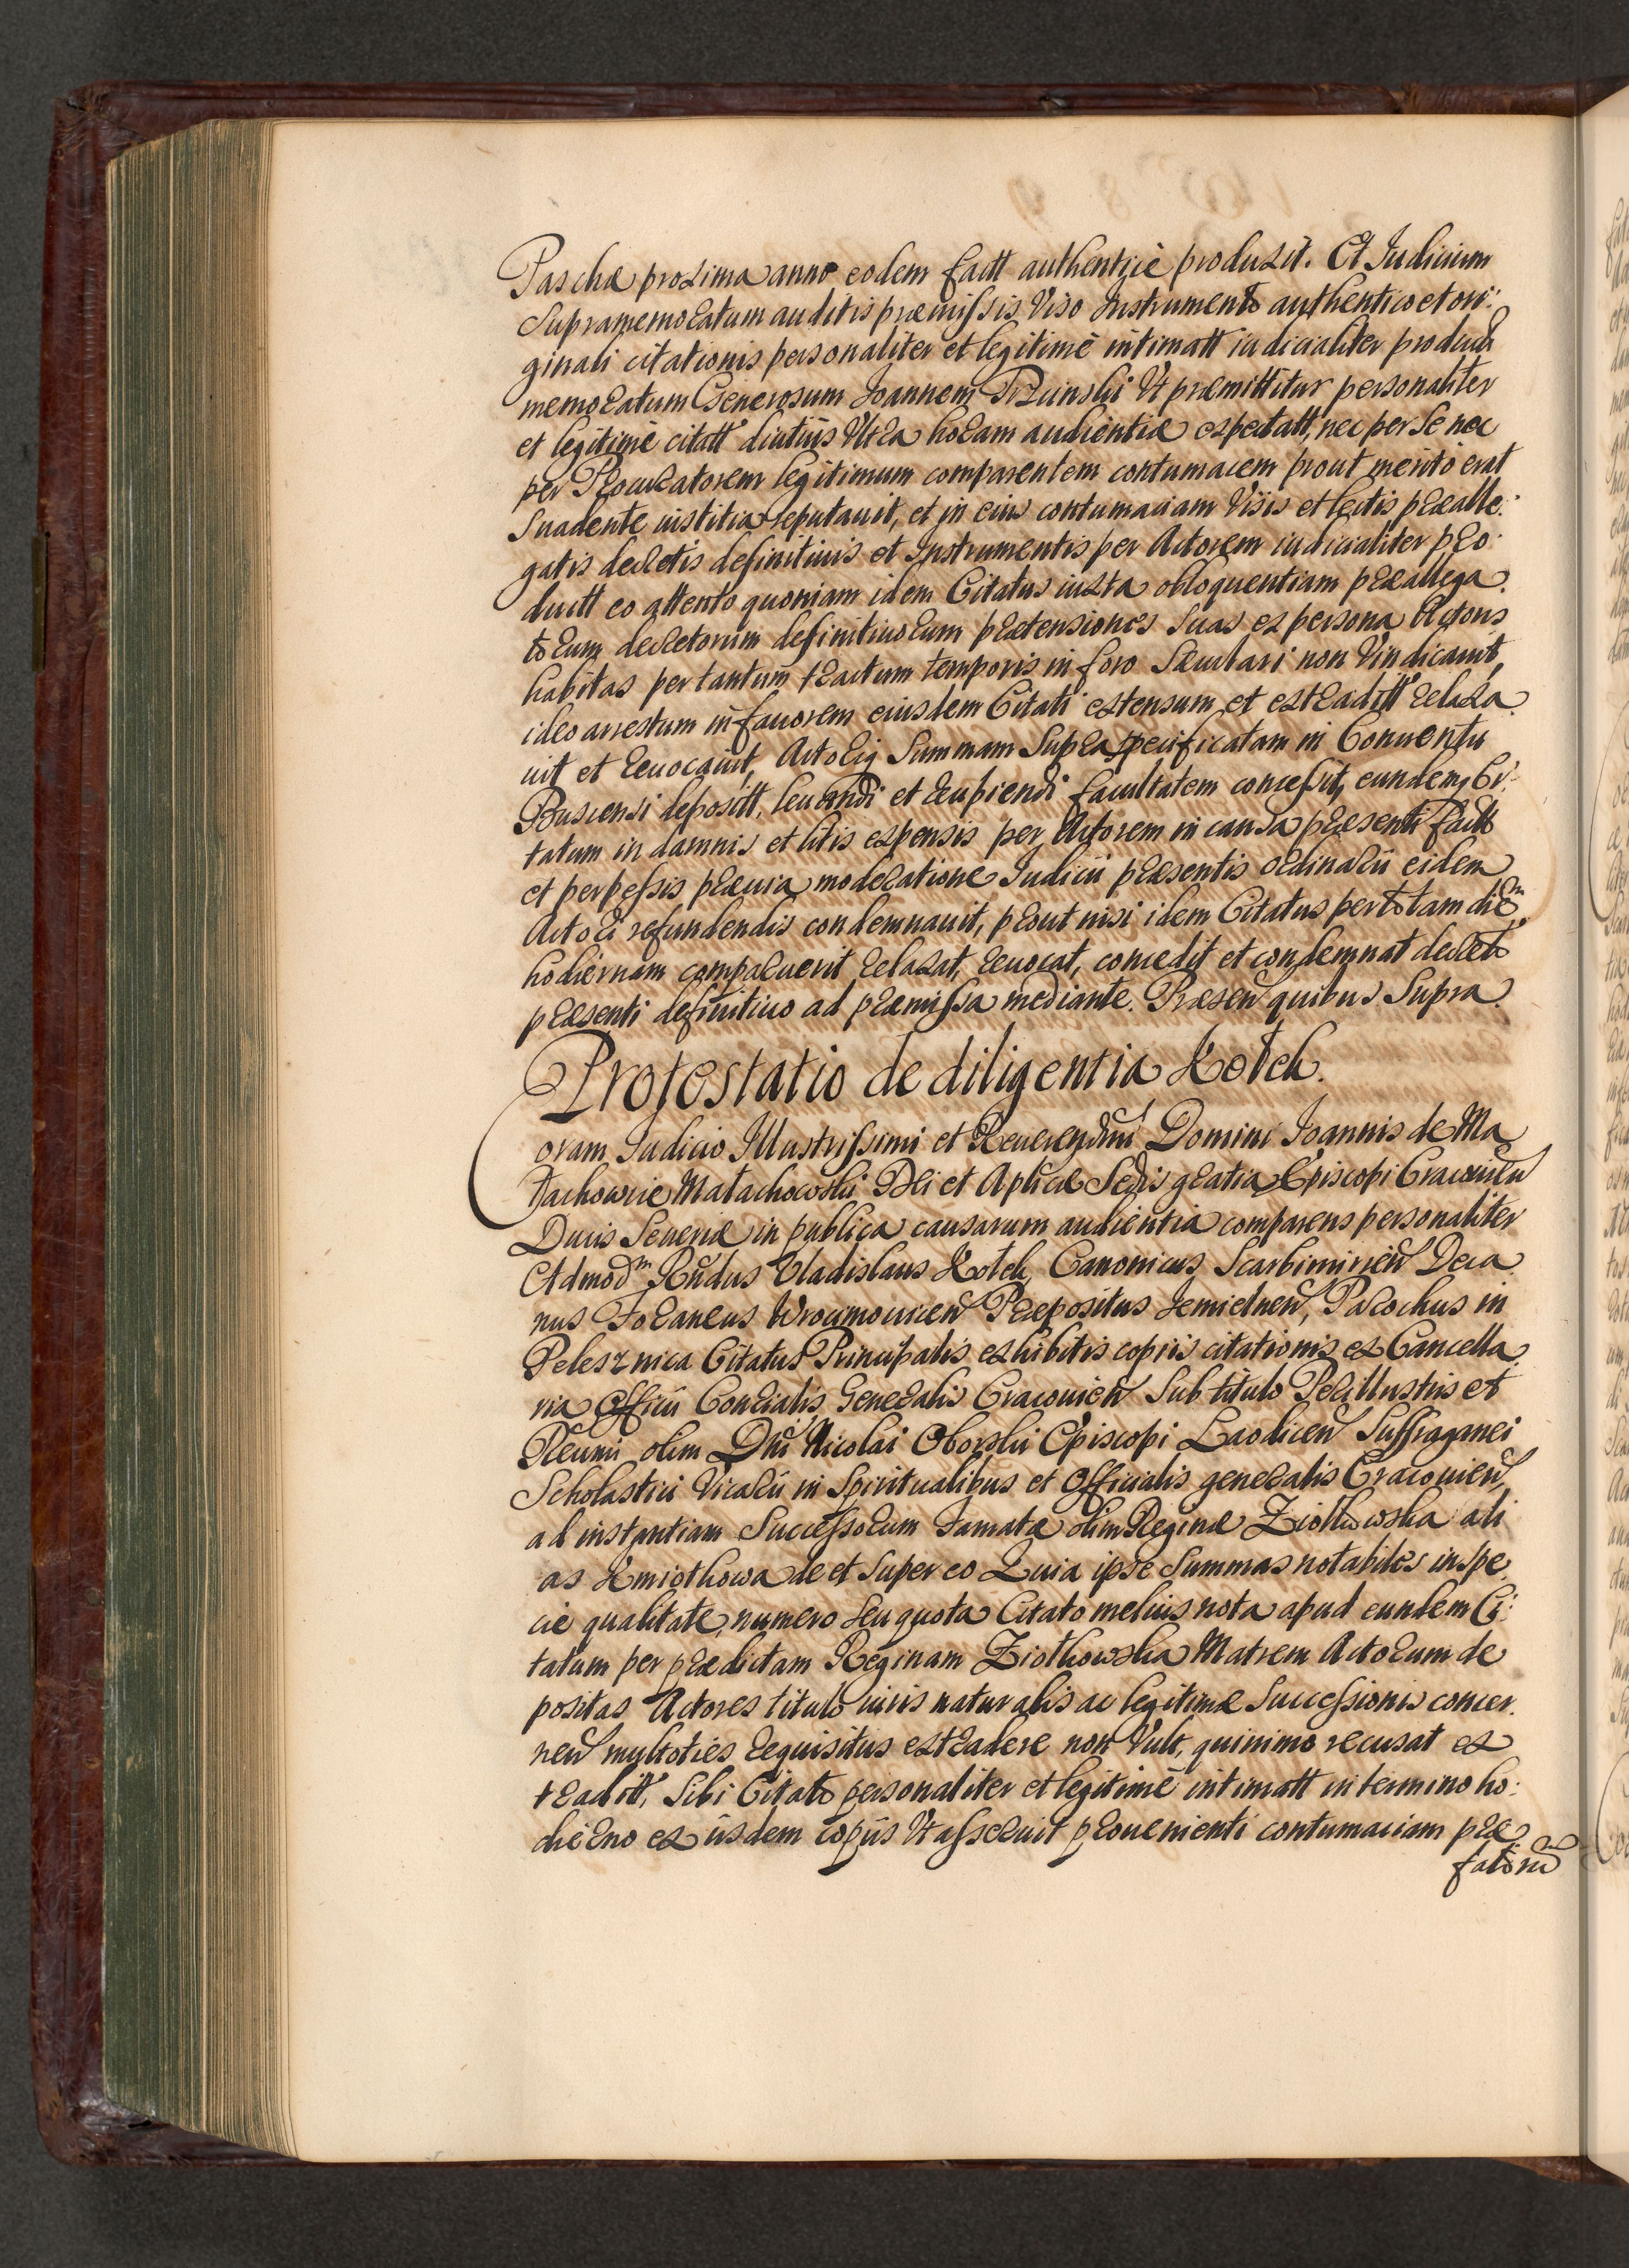 Paschæ proxima anno eodem factt authenticè produxit. Et Judicium
supramemoratum auditis præmissis Viso Instrumento authentico et ori:
ginali citationis personaliter et legitimè intimatt iudicialiter product
memoratum Generosum Joannem Vt præmittitur personaliter
et legitimè citatt diutiùs Vltra horam audientiæ expectatt, nec per se nec
per Procuratorem legitimum comparentem contumacem prout meritò erat
suadente iustitia reputauit, et in eius contumaciam Visis et lectis præalle:
gatis decretis definitiuis et Instrumentis per Actorem iudicialiter pro:
ductt eo attento quoniam idem Citatus iuxta obloquentiam præallega:
torum decretorum definitiuorum prætensiones suas ex persona Actoris
habitas per tantum tractum temporis in foro sæculari non Vindicauit,
ideo arrestum in fauorem eiusdem Citati extensum et extraditt relaxa:
uit et reuocauit, Actoriq summam supra specificatam in Conuentu
Busciensi depositt, leuandi et recipiendi facultatem concessit, eundemq Ci:
tatum in damnis et litis expensis per Actorem in causa præsenti factt
et perpessis præuia moderatione Iudicii præsentis ordinarii eidem
Actori refundendis condemnauit, prout nisi idem Citatus per totam diem
hodiernam comparuerit relaxat, reuocat, concedit et condemnat decreto
præsenti definitiuo ad præmissa mediante. Præsen quibus supra.
Protestatio de diligentia Kotek.
Coram Iudicio Illustrissimi et Reuerendmi Domini Joannis de Ma
łachowice Małachowski Dei et Aplicæ Sedis gratia Episcopi Cracouien
Ducis Seueriæ in publica causarum audientia comparens personaliter
Admodm Rndus Vladislaus Kotek, Canonicus Scarbimirien Deca
nus Foraneus Wrocimouicen Præpositus Jemielnen, Parochus in
Pelesznica Citatus Principalis exhibitis copiis citationis ex Cancella
ria Officii Consialis Generalis Cracouien sub titulo Perillustris et
Reumi olim Dni Nicolai Oborski Episcopi Laodicen Suffraganei
Scholastici Vicarii in Spiritualibus et Officialis generalis Cracouien,
ad instantiam Successorum Famatæ olim Reginæ Ziołkowska ali
as Kmiothowa de et super eo Quia ipse summas notabiles in spe
cie qualitate, numero seu quota Citato melius nota apud eundem Ci:
tatum per prædictam Reginam Ziołkowska Matrem Actorum de
positas Actores titulo iuris naturalis ac legitimæ Successionis concer:
nen multoties requisitus extradere non Vult, quinimo recusat ex
traditt, sibi Citato personaliter et legitimè intimatt in termino ho:
dierno ex iisdem copiis Vt asseruit prouenienti contumaciam præ
fatorum